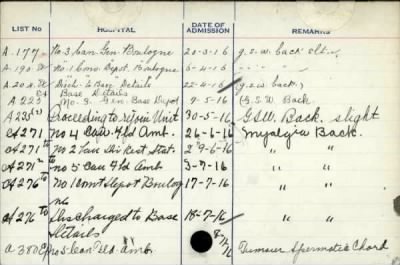 LIST No HOSPITAL DATE OF ADMISSION REMARKS
A.177 No 3 Can. Gen. Boulogne 20-3-16 g.s.w. back slt.
No 1 Conv. Depot. Boulogne 5-4-16 " "
Base" Details 22-4-16 (g.s.w. back)
A 223 Base Details No. 3. Gen. Base Depot 9-5-16 (G.S.W. Back.
Proceeding to rejoin Unit 30-5-16 GSW. Back. slight
A271 No 4 Can Fld Amb. 26-6-16 Myalgia Back.
A 272 No 2 Can Div Rest Stat. 29-6-16 " "
A 277 To No 5 Can Fld Amb 3-7-16 " "
A276 To No 1 Conv Depot Boulogne 17-7-16 " "
A 276 To Discharged to Base Details 18-7-16 " "
A 380 No 5 Can. Fld. Amb. Tumour Spermatic Chord